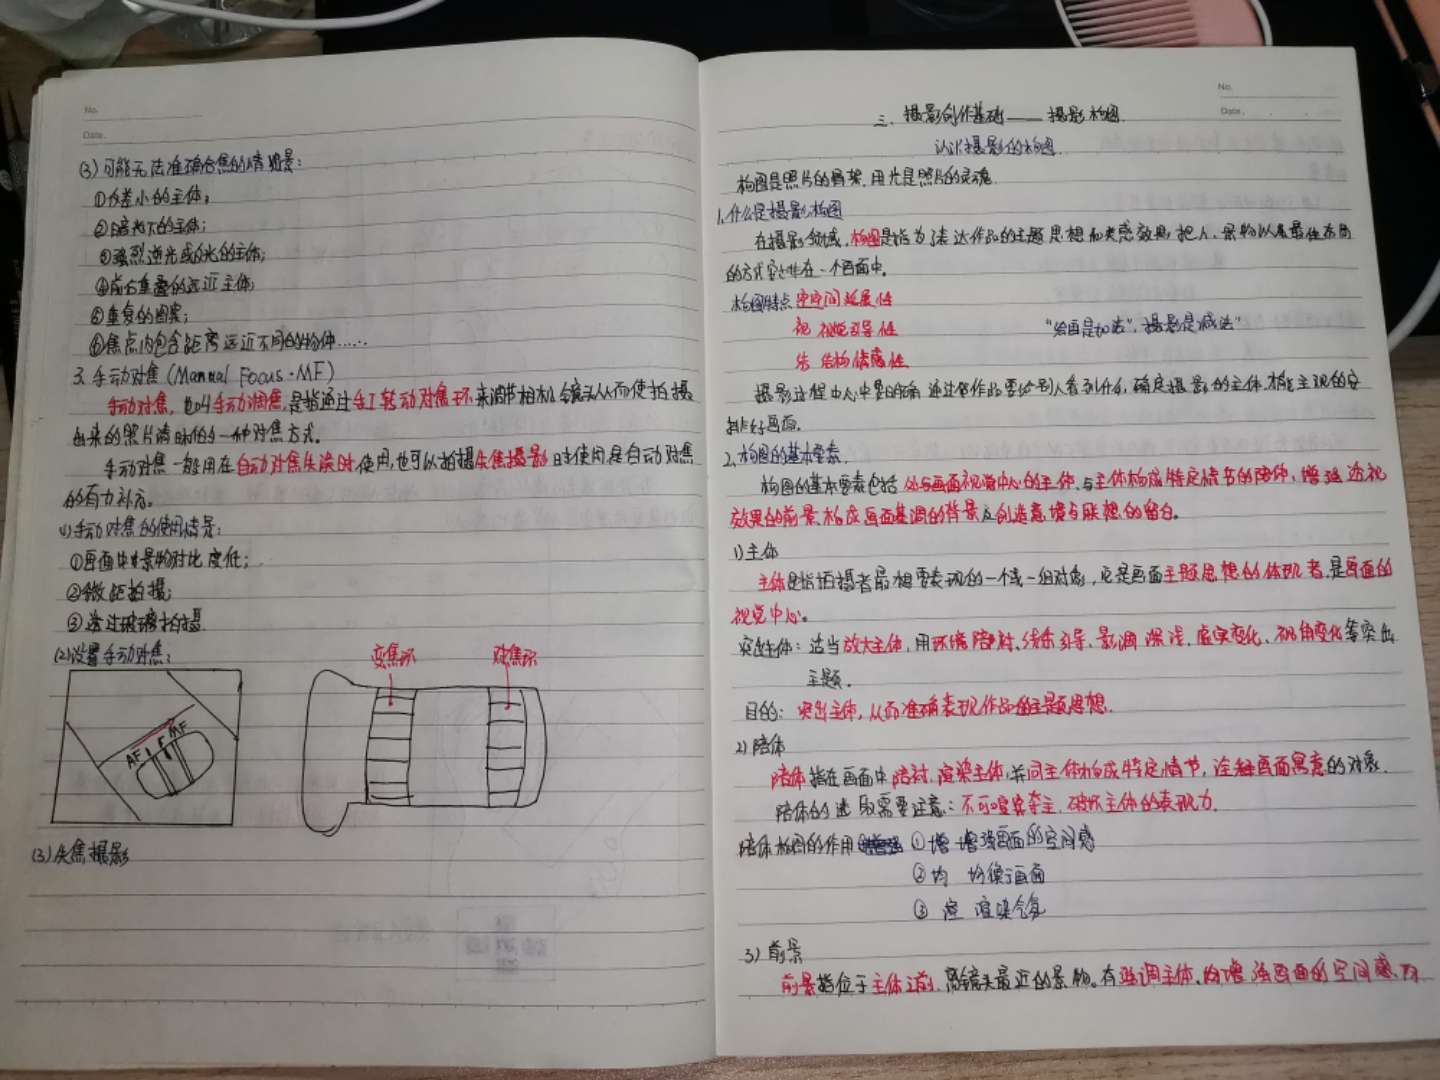 No.
Date.
(3) 可能无法准确合焦的情景:
①反差小的主体;
②暗光下的主体;
③强烈逆光或反光的主体;
④前后重叠的远近主体;
⑤重复的图案;
⑥焦点内包含距离远近不同的物体……
3. 手动对焦 (Manual Focus·MF)
手动对焦,也叫手动调焦,是指通过手工转动对焦环来调节相机镜头从而使拍摄
出来的照片清晰的一种对焦方式。
手动对焦一般用在自动对焦失误时使用,也可以拍摄失焦摄影时使用,是自动对焦
的有力补充。
(1)手动对焦的使用情景:
①画面中景物对比度低;
②微距拍摄;
③透过玻璃拍摄
(2)设置手动对焦:
变焦环 对焦环
AF MF
(3)失焦摄影
No.
Date.
三、摄影创作基础——摄影构图
认识摄影的构图
构图是照片的骨架,用光是照片的灵魂
1.什么是摄影构图
在摄影领域,构图是指为了表达作品的主题思想和美感效果,把人、景物以最佳布局
的方式安排在一个画面中。
构图特点 空 空间延展性
视 视觉引导性 “绘画是加法”,摄影是减法”
结 结构情感性
摄影过程中心中要明确通过作品要给别人看到什么,确定摄影的主体,才能主观的安
排好画面。
2.构图的基本要素
构图的基本要素包括 处与画面视觉中心的主体、与主体构成特定情节的陪体,增强透视
效果的前景、构成画面基调的背景及创造意境与联想的留白。
1)主体
主体是指拍摄者最想要表现的一个或一组对象,它是画面主题思想的体现者,是画面的
视觉中心。
突出主体:适当放大主体,用环境陪衬、线条引导、影调深浅、虚实变化、视角变化等突出
主题.
目的:突出主体,从而准确表现作品的主题思想.
2)陪体
陪体指在画面中陪衬,渲染主体,并同主体构成特定情节,诠释画面寓意的对象.
陪体的选取需要注意:不可喧宾夺主,破坏主体的表现力.
陪体构图的作用 ①增 增强画面的空间感
②均 均衡画面
③ 渲 渲染气氛
3)前景
前景指位于主体之前,离镜头最近的景物。有强调主体、增强画面的空间感、均